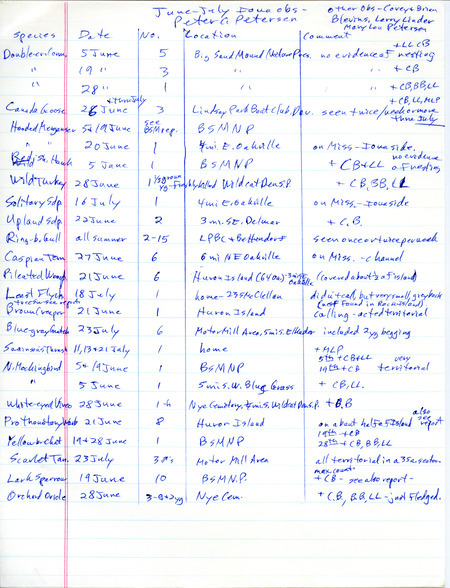 June-July Iowa obs-
Peter C. Petersen
other Obs - Coveys Brien
Blevins, Larry Linder
Mary Lou Petersen
Species Date No. Location Comment
+ LL CB
Double-cr. Corm. 5 June 5 Big Sand Mound Nature Pres. no evidence of nesting
" 19 " 3 " + CB
" 28 " 1 " + CB, BB, LL
Canada Goose 26 June + thru July 3 Lindsay Park Boat Club, Dav. seen twice/week or more thru July
+ CB, LL, MLP
Hooded Merganser 5 & 19 June see BSM rep. BSMNP
" 20 June 1 4 mi E. Oakville on Miss. - Iowa side.
Red-sh. Hawk 5 June 1 BSMNP + CB + LL no evidence of nesting
Wild Turkey 28 June Wildcat Den S.P. + CB, BB, LL
Solitary Sdp. 16 July 1 4 mi E. Oakville on Miss. - Iowa side
Upland Sdp. 22 June 2 3 mi SE. Delmar + C.B.
Ring-b. Gull all summer 2-15 LPBC & Bettendorf seen once or twice per week
Caspian Tern 27 June 6 6 mi NE Oakville on Miss. - channel
Pileated Wood. 21 June 6 Huron Island (640a) - 3 mi SE Oakville (covered about 1/2 of island)
Least Flyc. 18 July 1 home - 235 McClellan didn't call, but very small gray back
Brown Creeper 21 June 1 Huron Island calling - acted territorial
Blue-gray Gnatc. 23 July 6 Motor Mill Area, 5 mi S. Elkader included 2 yg begging
Swainson's Thrush 11, 13 & 21 July 1 home + MLP
N. Mockingbird 5 & 19 June 1 BSMNP 5th + CB & LL very
19th + CB territorial
" 5 June 1 5 mi S.W. Blue Grass + CB, LL.
White-eyed Vireo 28 June 1-h Nye Cemetery, 5 mi S. Wildcat Den S.P. + B.B
Prothonotary Warb 21 June 8 Huron Island on about half of Island also see report
Yellow-br. Chat 19 & 28 June 1 BSMNP 19th + CB
28th + CB, BB, LL
Scarlet Tan. 23 July 3 ♂'s Motor Mill Area all territorial in a 35 a. section
Lark Sparrow 19 June 10 BSMNP. max count + CB - see also report -
Orchard Oriole 28 June 3-9+2yg Nye Cem. + CB, BB, LL - just fledged.